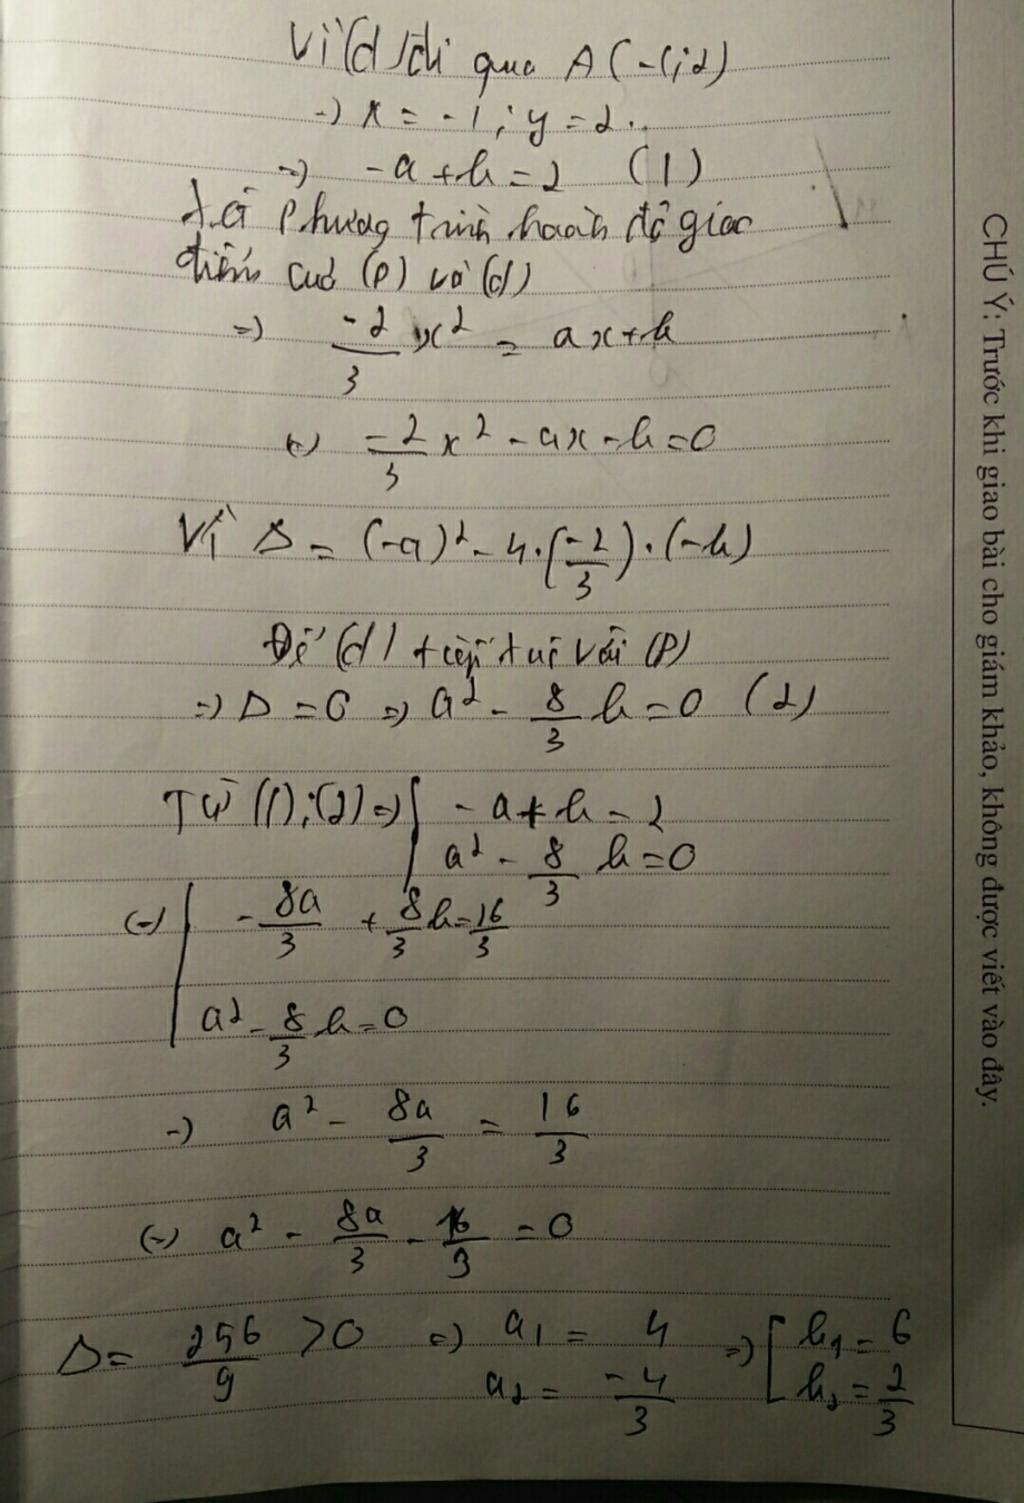 Vì (d) đi qua A(-1;2)
=) x = -1 ; y = 2 ..
=) -a + b = 2 (1)
Xét Phương trình hoành độ giao
điểm của (P) và (d)
=) -2/3 x² = ax + b
(=) -2/3 x² - ax - b = 0
Vì Δ = (-a)² - 4.(-2/3).(-b)
Để (d) tiếp xúc với (P)
=) Δ = 0 =) a² - 8/3 b = 0 (2)
Từ (1);(2) =) { -a + b = 2
a² - 8/3 b = 0
(=) { -8a/3 + 8/3 b = 16/3
a² - 8/3 b = 0
=) a² - 8a/3 = 16/3
(=) a² - 8a/3 - 16/3 = 0
Δ = 256/9 > 0 =) a₁ = 4 =) [ b₁ = 6
a₂ = -4/3 b₂ = 2/3
CHÚ Ý: Trước khi giao bài cho giám khảo, không được viết vào đây.